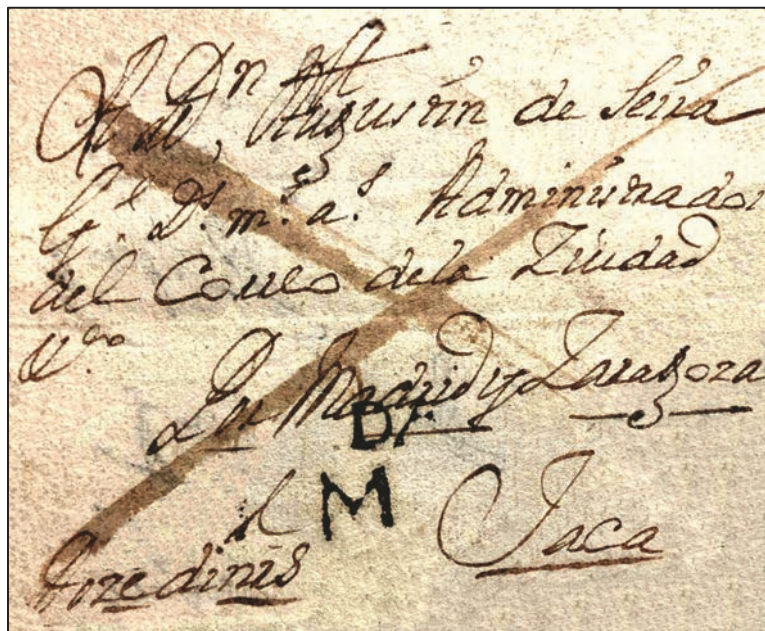 A Dn Augustin de Seña
Ge. Ds. ms. as. Administrador
del Correo de la Ziudad
Por Madrid y Zaragoza
DE
M
Jaca